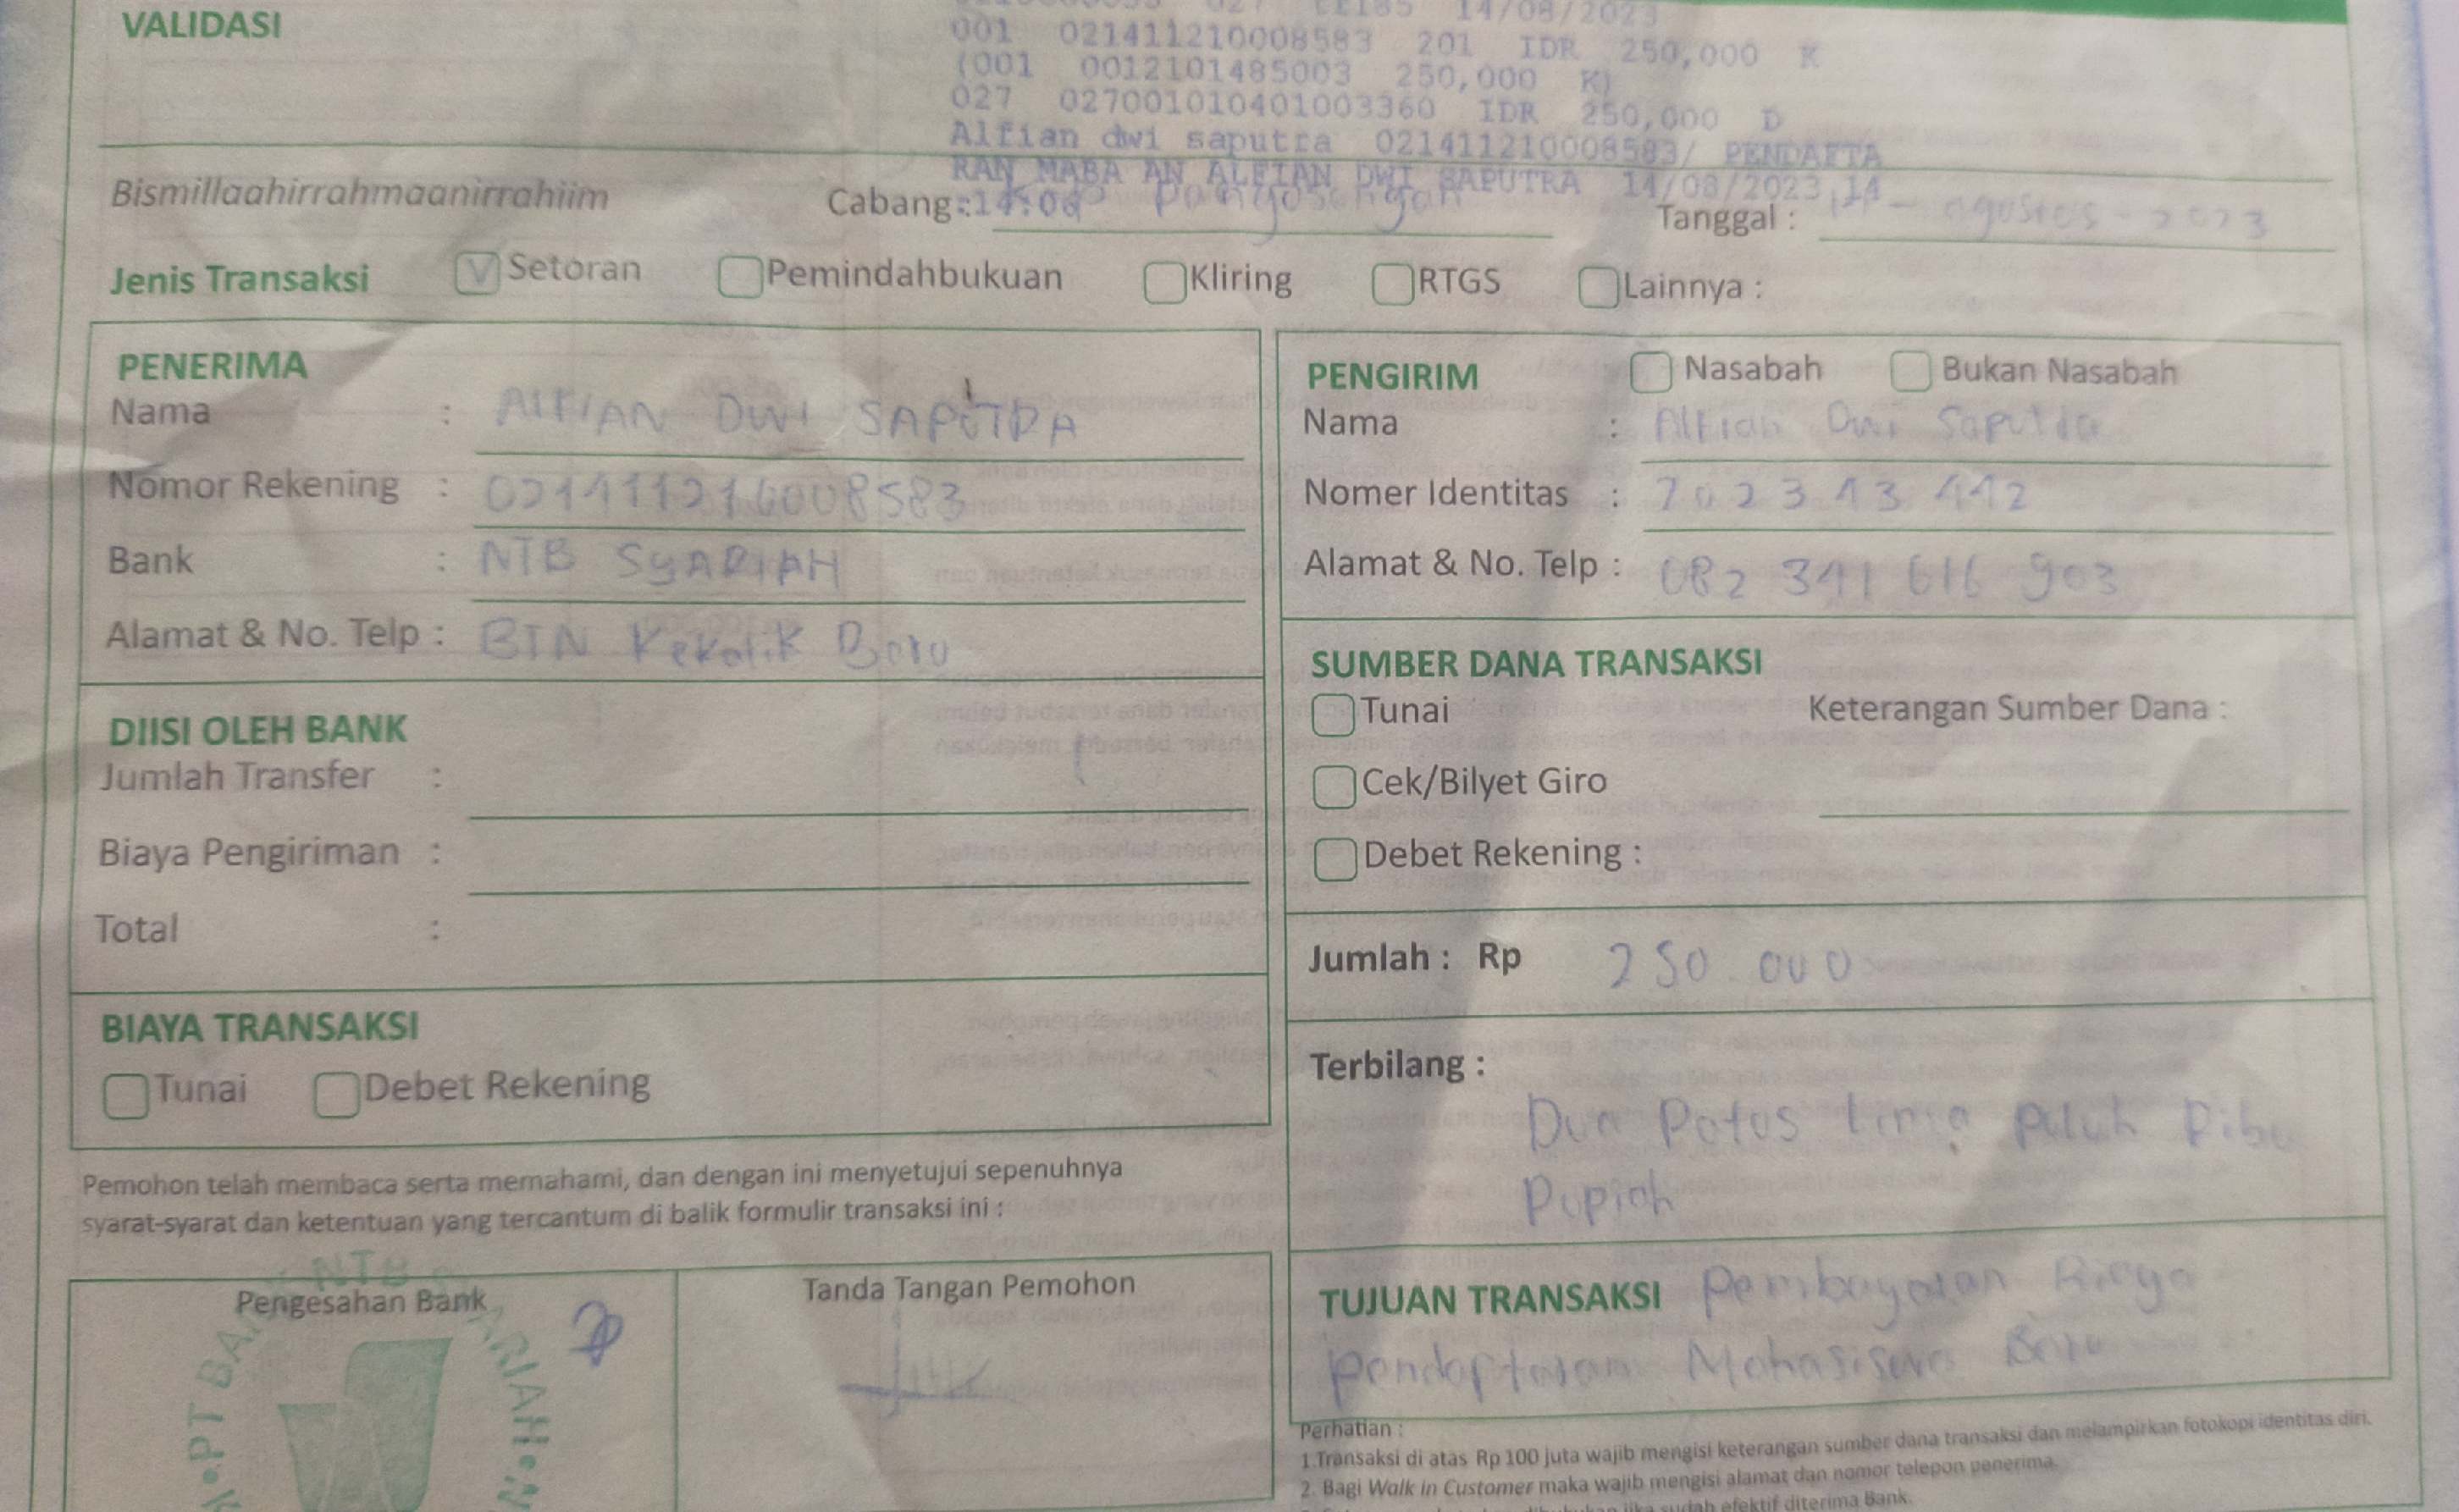 VALIDASI
14/08/2023
001 021411210008583 201 IDR 250,000 K
(001 0012101485003 250,000 K)
027 027001010401003360 IDR 250,000 D
Alfian dwi saputra 021411210008583/ PENDAFTA
RAN MABA AN ALFIAN DWI SAPUTRA 14/08/2023 14
:14:06
Bismillaahirrahmaanirrahiim Cabang : Tanggal : agustus - 2023
Jenis Transaksi V Setoran Pemindahbukuan Kliring RTGS Lainnya :
PENERIMA
Nama : AlFIAN DWI SAPUTRA
Nomor Rekening : 021411210008583
Bank : NTB SyARIAH
Alamat & No. Telp : BTN Kekalik Baru
DIISI OLEH BANK
Jumlah Transfer :
Biaya Pengiriman :
Total :
BIAYA TRANSAKSI
Tunai Debet Rekening
Pemohon telah membaca serta memahami, dan dengan ini menyetujui sepenuhnya
syarat-syarat dan ketentuan yang tercantum di balik formulir transaksi ini :
Pengesahan Bank
Tanda Tangan Pemohon
PENGIRIM Nasabah Bukan Nasabah
Nama : Alfian Dwi Saputra
Nomer Identitas : 202313112
Alamat & No. Telp : 082 341 616 903
SUMBER DANA TRANSAKSI
Tunai Keterangan Sumber Dana :
Cek/Bilyet Giro
Debet Rekening :
Jumlah : Rp 250.000
Terbilang :
Dua Ratus Lima Puluh Ribu
Rupiah
TUJUAN TRANSAKSI Pembayaran Biaya
pendaftaran Mahasiswa Baru
Perhatian :
1.Transaksi di atas Rp 100 juta wajib mengisi keterangan sumber dana transaksi dan melampirkan fotokopi identitas diri.
2. Bagi Walk in Customer maka wajib mengisi alamat dan nomor telepon penerima.
jika sudah efektif diterima Bank.